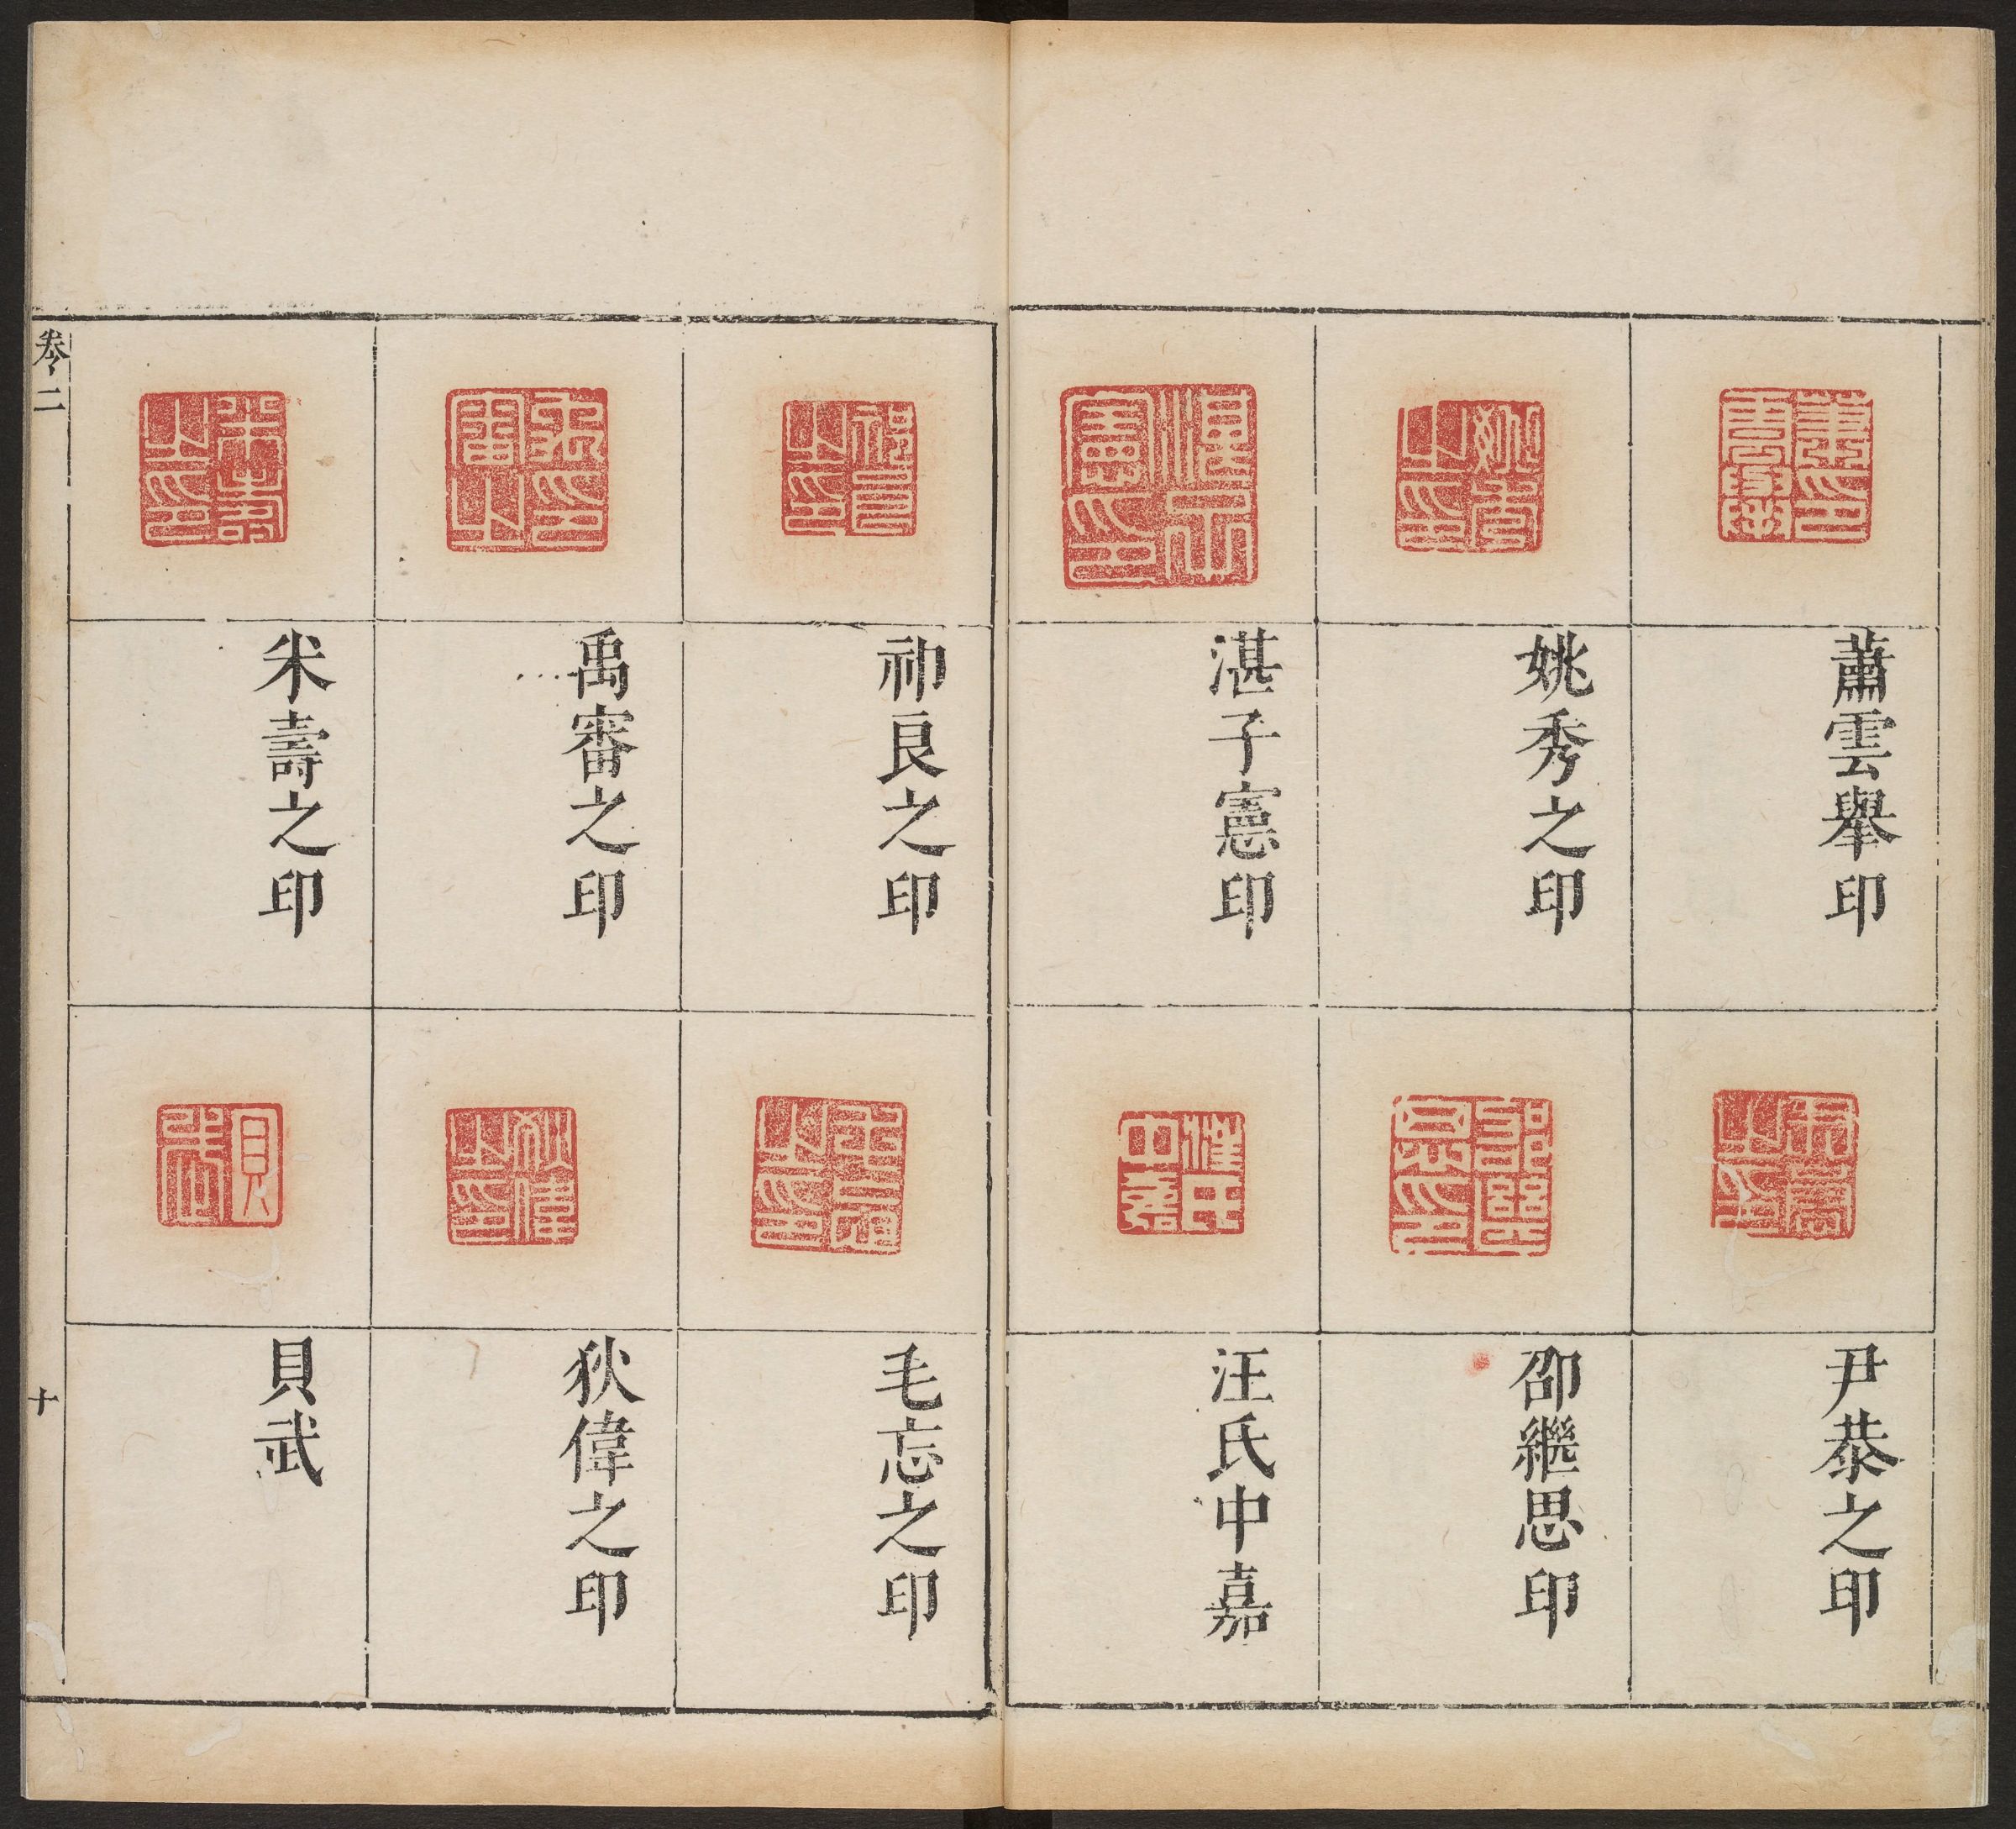 蕭雲舉印
尹恭之印
姚秀之印
邵繼思印
湛子憲印
汪氏中嘉
祁良之印
毛忘之印
禹審之印
狄偉之印
米壽之印
貝武
卷二
十